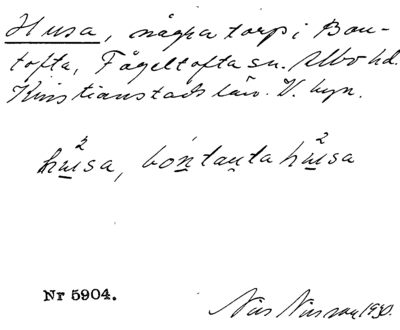 Husa, några torp i Bon-
tofta, Fågeltofta sn. Albo hd.
Kristianstads län. V. byn.
hu²sa, bóntau̯ta hu²sa
Nr 5904.
Nils Nilsson 1930.